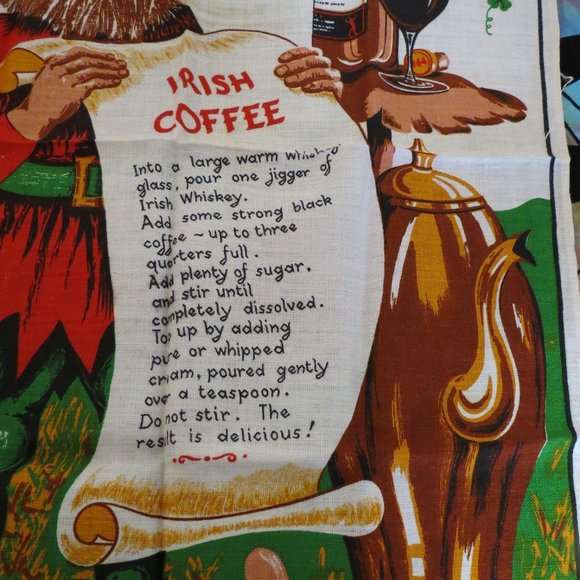 IRISH
COFFEE
Into a large warm whiskey
glass, pour one jigger of
Irish Whiskey.
Add some strong black
coffee ~ up to three
quarters full.
Add plenty of sugar,
and stir until
completely dissolved.
Top up by adding
pure or whipped
cream, poured gently
over a teaspoon.
Do not stir. The
result is delicious!